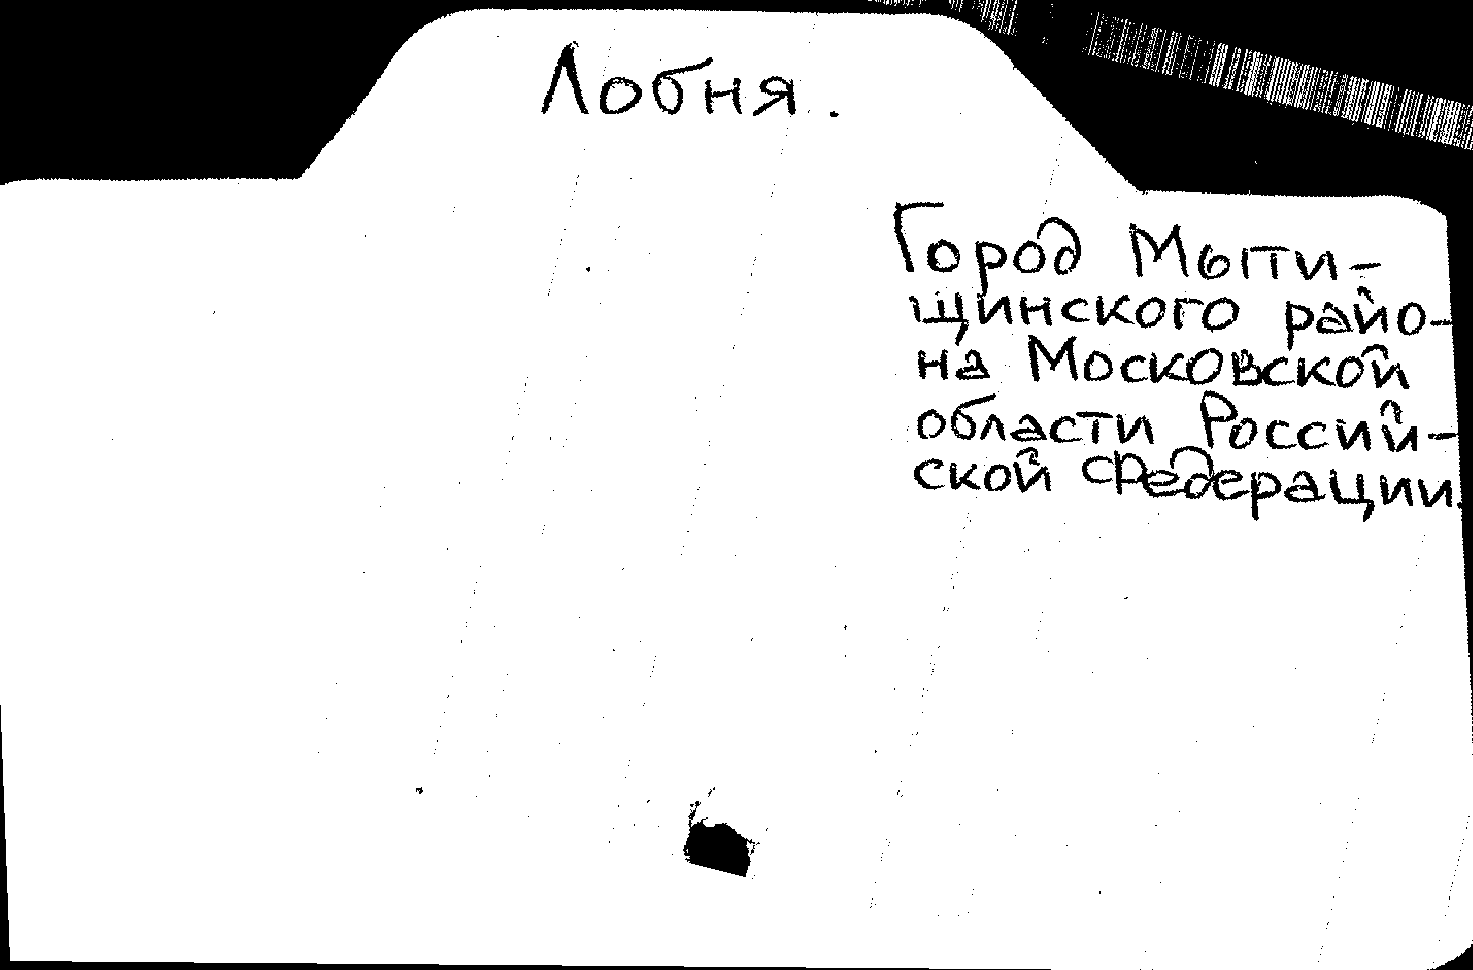 Лобня.
Город Мыти-
щинского райо-
на Московской
области Россий-
ской Федерации.